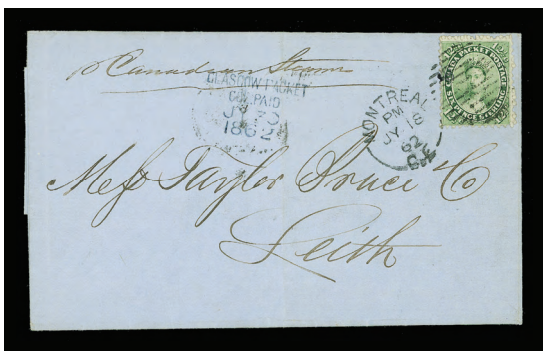 p Canadian Steamer
GLASGOW PACKET
COL. PAID
JY 30
1862
MONTREAL
PM
JY 18
62
C.E.
CANADA PACKET POSTAGE
Mess Taylor Bruce & Co
Leith